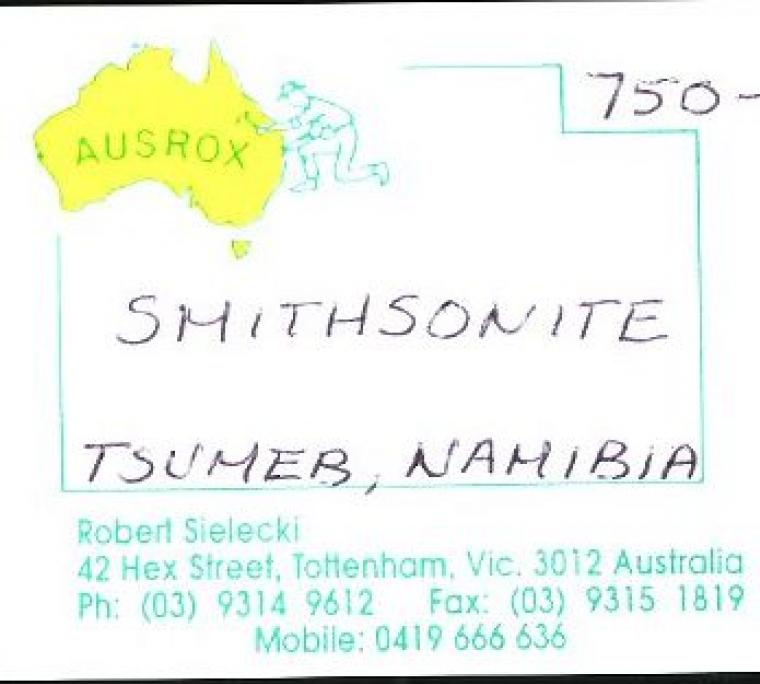 AUSROX
750-
SMITHSONITE
TSUMEB, NAMIBIA
Robert Sielecki
42 Hex Street, Tottenham, Vic. 3012 Australia
Ph: (03) 9314 9612 Fax: (03) 9315 1819
Mobile: 0419 666 636